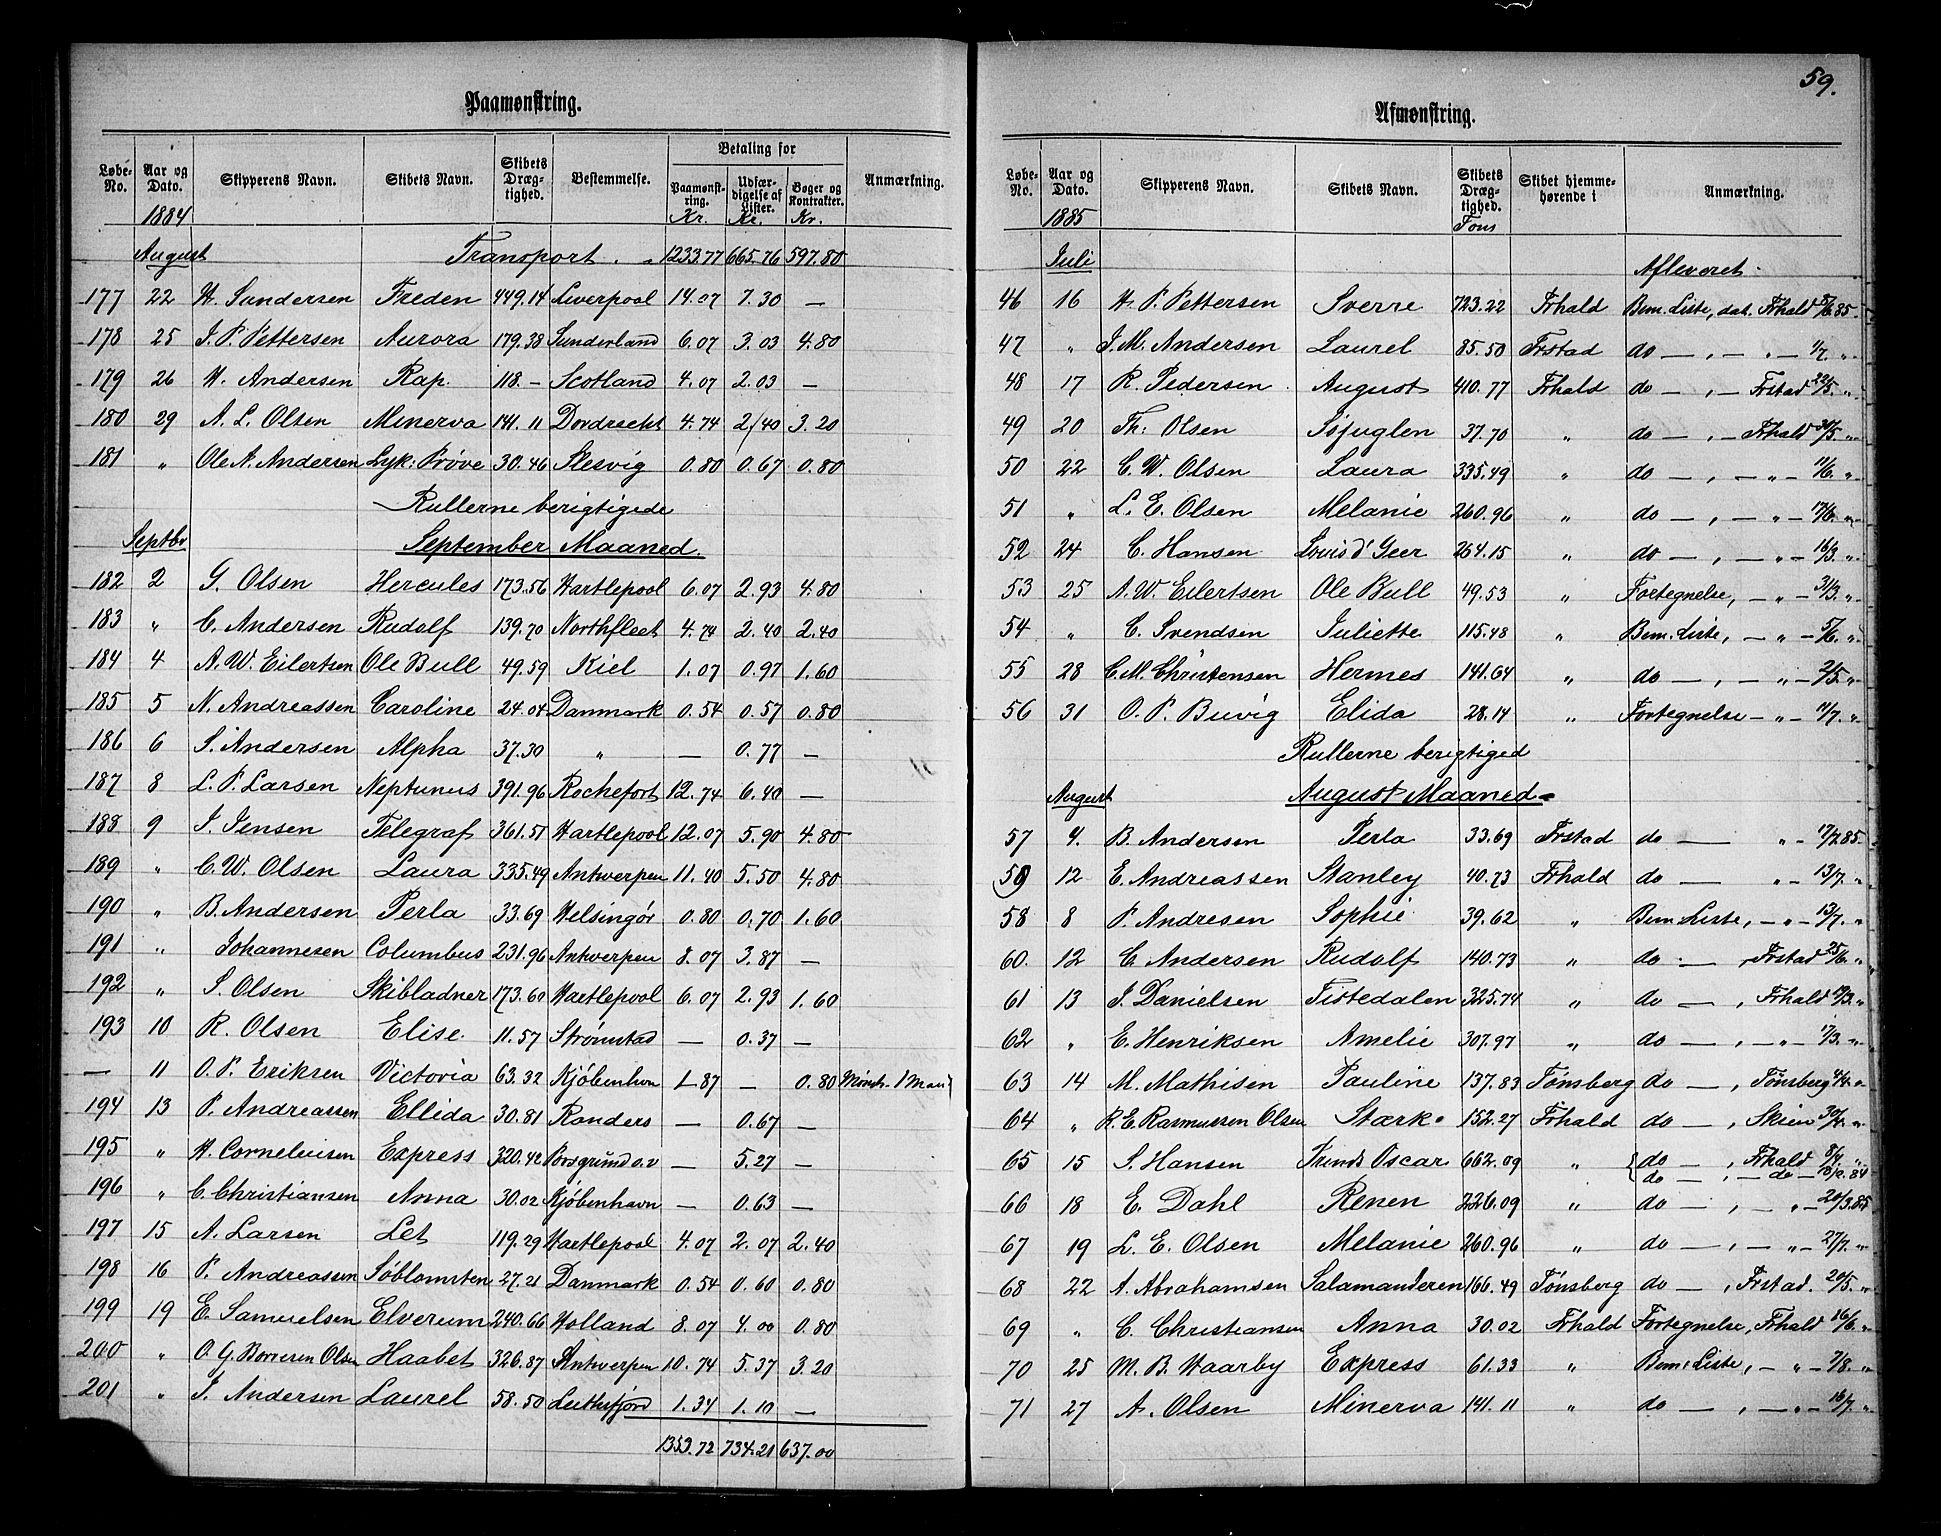 Paamønstring.
Løbe-No. | Aar og Dato. | Skipperens Navn. | Skibets Navn. | Skibets Dræg-tighed. | Bestemmelse. | Betaling for | Anmærkning.
Paamønst-ring. | Udfær-digelse af Lister. | Bøger og Kontrakter.
1884 | Kr. | Kr. | Kr.
August | Transport | 1233.77 | 665.76 | 597.80
177 | 22 | H. Sandersen | Freden | 449.14 | Liverpool | 14.07 | 7.30 | —
178 | 25 | J. P. Pettersen | Aurora | 179.38 | Sunderland | 6.07 | 3.03 | 4.80
179 | 26 | H. Andersen | Rap. | 118.— | Scotland | 4.07 | 2.03 | —
180 | 29 | A. L. Olsen | Minerva | 141.11 | Dordrecht | 4.74 | 2.40 | 3.20
181 | " | Ole A. Andersen | Lyk: Prøve | 30.46 | Slesvig | 0.80 | 0.67 | 0.80
Rullerne berigtigede
Septbr | September Maaned.
182 | 2 | G. Olsen | Hercules | 173.56 | Hartlepool | 6.07 | 2.93 | 4.80
183 | " | C. Andersen | Rudolf | 139.70 | Northfleet | 4.74 | 2.40 | 2.40
184 | 4 | A. W. Eilertsen | Ole Bull | 49.59 | Kiel | 1.07 | 0.97 | 1.60
185 | 5 | N. Andreassen | Caroline | 24.04 | Danmark | 0.54 | 0.57 | 0.80
186 | 6 | S. Andersen | Alpha | 37.30 | " | — | 0.77 | —
187 | 8 | L. P. Larsen | Neptunus | 391.96 | Rochefort | 12.74 | 6.40 | —
188 | 9 | J. Jensen | Telegraf | 361.51 | Hartlepool | 12.07 | 5.90 | 4.80
189 | " | C. W. Olsen | Laura | 335.49 | Antwerpen | 11.40 | 5.50 | 4.80
190 | " | B. Andersen | Perla | 33.69 | Helsingør | 0.80 | 0.70 | 1.60
191 | " | Johannesen | Columbus | 231.96 | Antwerpen | 8.07 | 3.87 | —
192 | " | S. Olsen | Skibladner | 173.60 | Hartlepool | 6.07 | 2.93 | 1.60
193 | 10 | R. Olsen | Elise. | 11.57 | Strømstad | — | 0.37 | —
— | 11 | O. P. Eriksen | Victoria | 63.32 | Kjøbenhvn | 1.87 | — | 0.80 | Mønst. 1 Mand
194 | 13 | P. Andreassen | Ellida | 30.81 | Randers | — | 0.67 | —
195 | " | H. Corneliusen | Express | 320.42 | Porsgrund o.v | — | 5.27 | —
196 | " | C. Christiansen | Anna | 30.02 | Kjøbenhavn | — | 0.63 | —
197 | 15 | A. Larsen | Let | 119.29 | Hartlepool | 4.07 | 2.07 | 2.40
198 | 16 | P. Andreassen | Søblomsten | 27.21 | Danmark | 0.54 | 0.60 | 0.80
199 | 19 | E. Samuelsen | Elverum | 240.66 | Holland | 8.07 | 4.00 | 0.80
200 | " | O. G. Borresen Olsen | Haabet | 326.87 | Antwerpen | 10.74 | 5.37 | 3.20
201 | " | J. Andersen | Laurel | 58.50 | 1.34 | 1.10 | —
1353.72 | 734.21 | 637.00
59.
Afmønstring.
Løbe-No. | Aar og Dato. | Skipperens Navn. | Skibets Navn. | Skibets Dræg-tighed. | Skibet hjemme-hørende i | Anmærkning.
1885 | Tons
Juli | Afleveret
46 | 16 | H. P. Pettersen | Sverre | 723.22 | Frhald | Bem. Liste, dat. Frhald 5/6 85
47 | " | J. M. Andersen | Laurel | 85.50 | Frstad | do — , — " — 1/7. "
48 | 17 | R. Pedersen | August | 410.77 | Frhald | do — , — Frstad 29/5. "
49 | 20 | Th: Olsen | Søfuglen | 37.70 | " | do — , — Frhald 30/5. "
50 | 22 | C. W. Olsen | Laura | 335.49 | " | do — , — " — 11/6. "
51 | " | L. E. Olsen | Melanie | 260.96 | " | do — , — " — 17/6. "
52 | 24 | C. Hansen | Louis d' Geer | 264.15 | " | do — , — " — 16/3. "
53 | 25 | A. W. Eilertsen | Ole Bull | 49.53 | " | Fortegnelse, — " — 31/3. "
54 | " | C. Svendsen | Juliette | 115.48 | " | Bem. Liste, — " — 5/6. "
55 | 28 | C. M. Christensen | Hermes | 141.64 | " | do — , — " — 2/5. "
56 | 31 | O. P. Buvig | Elida | 28.14 | " | Fortegnelse — " — 11/7. "
Rullerne berigtiged
August | August Maaned
57 | 4. | B. Andersen | Perla | 33.69 | Frstad | do — " — 17/7 85.
59 | 12 | E. Andreassen | Stanley | 40.73 | Frhald | do — " — 13/7. "
58 | 8 | P. Andresen | Sophie | 39.62 | " | Bem. Liste, — " — 13/7. "
60. | 12 | C. Andersen | Rudolf | 140.73 | " | do — , Frstad 25/6. "
61 | 13 | J. Danielsen | Tistedalen | 325.74 | " | do — , Frhald 19/3. "
62 | " | E. Henriksen | Amelie | 307.97 | " | do — , — " — 17/3. "
63 | 14 | M. Mathisen | Pauline | 137.83 | Tønsberg | do — , Tønsberg 4/4. "
64 | " | R. E. Rasmussen Olsen | Stærk | 152.27 | Frhald | do — , Skien 30/4. "
65 | 15 | S. Hansen | Oscar | 662.09 | " | do — , Frhald 8/4. "
do — , — do — 84
66 | 18 | E. Dahl | Renen | 226.09 | " | do — , — " — 20/3. 85
67 | 19 | L. E. Olsen | Melanie | 260.96 | " | do — , — " — 27/7. "
68 | 22 | A. Abrahamsen | Salamanderen | 166.49 | Tønsberg | do — , Frstad. 20/5. "
69 | " | C. Christiansen | Anna | 30.02 | Frhald | Fortegnelse, Frhald 16/6. "
70 | 25 | M. B. Haarby | Express | 61.33 | " | Bem: Liste, — " — 7/8. "
71 | 27 | A. Olsen | Minerva | 141.11 | " | do — , — " — 16/7. "